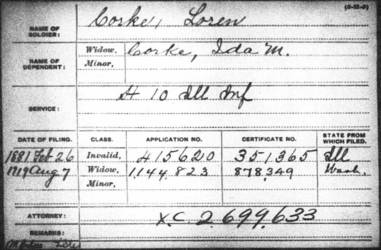 (3-15-9)
NAME OF SOLDIER: Corke, Loren
NAME OF DEPENDENT: Widow. Corke, Ida M.
Minor.
SERVICE: H 10 Ill Inf
DATE OF FILING. CLASS. APPLICATION NO. CERTIFICATE NO. STATE FROM WHICH FILED.
1881 Feb 26 Invalid, 415620 351,365 Ill
1919 Aug 7 Widow, 1144,823 878,349 Wash.
Minor,
ATTORNEY: X.C. 2,699,633
REMARKS: